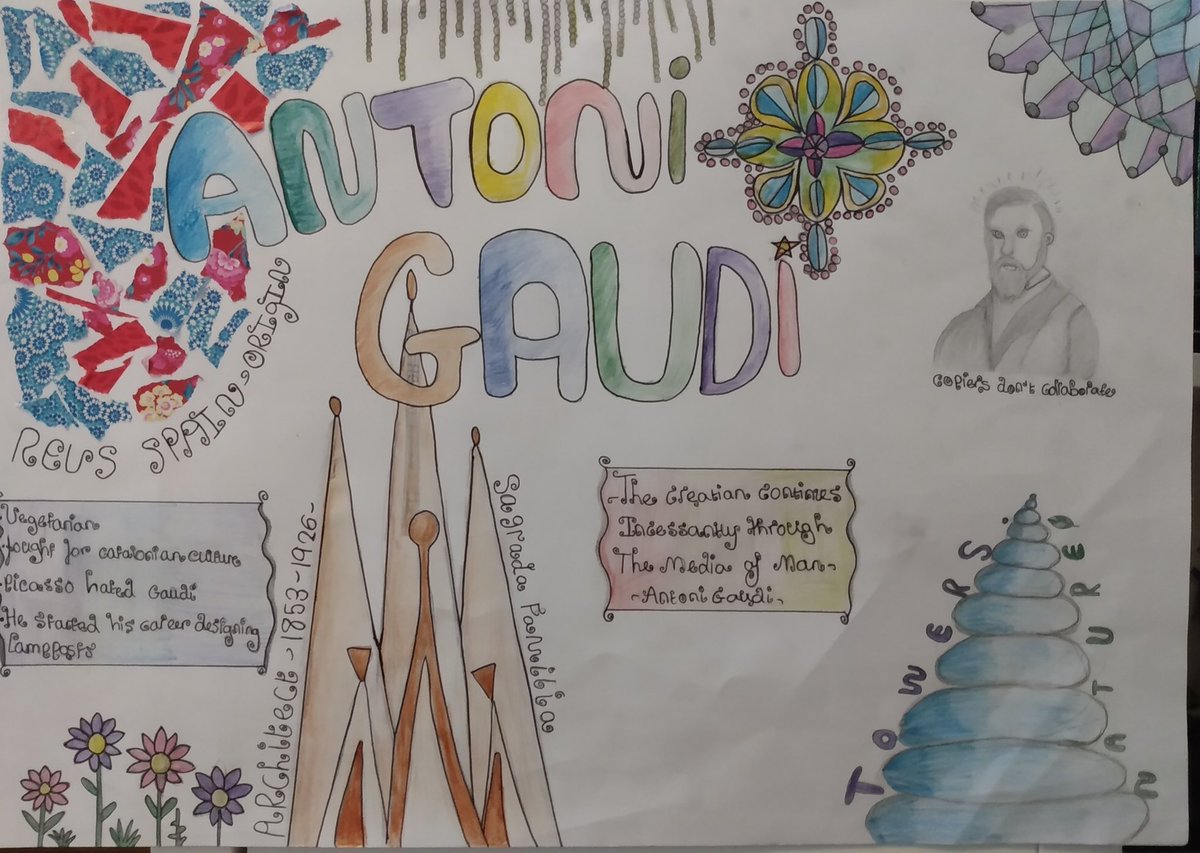 ANTONi
GAUDi
REUS SPAIN-ORIGIN
Vegetarian
fought for catalonian culture
Picasso hated Gaudi
He started his career designing
Lampposts
ARCHitECt -1853-1926-
Sagrada Familia
-The Creation Continues
Incessantly through
The Media of Man-
-Antoni Gaudi-
Copiers don't collaborate
TOWERS
NATURE